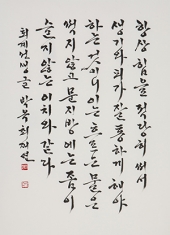 항상 힘을 적당히 써서
생기와 피가 잘 통하게 해야
하는 것이니 이는 흐르는 물은
썩지 않고 문지방에는 좀이
슬지 않는 이치와 같다
퇴계선생 글